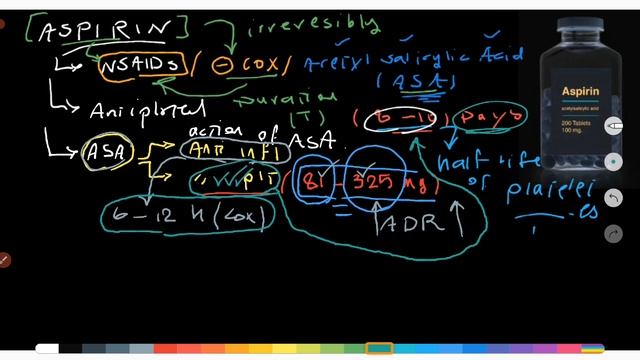 [ASPIRIN] irreversibly
NSAIDs / ⊖ COX / Acetyl Salicylic Acid
(ASA)
Duration
(T)
Antiplatel
(8-10) Days
action of ASA
ASA
Anti Infl
" plt (81 - 325 mg)
half life
of platelet
es
6-12 h (COX)
↑ ADR ↑
Aspirin
acetylsalicylic acid
200 Tablets
100 mg.